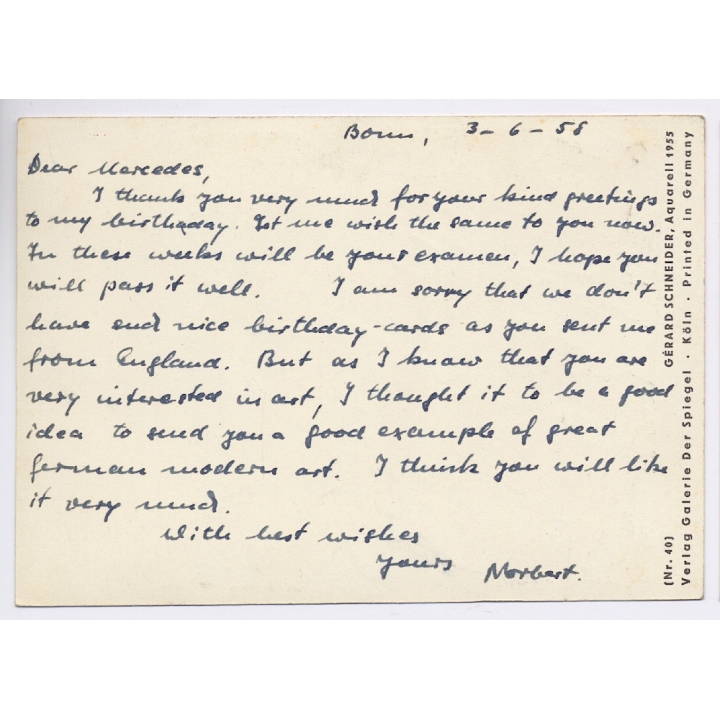 Bonn, 3-6-58
Dear Mercedes,
I thank you very much for your kind greetings
to my birthday. Let me wish the same to you now.
In these weeks will be your examen, I hope you
will pass it well. I am sorry that we don't
have such nice birthday-cards as you sent me
from England. But as I know that you are
very interested in art, I thought it to be a good
idea to send you a good example of great
german modern art. I think you will like
it very much.
With best wishes
Yours Norbert.
GÉRARD SCHNEIDER, Aquarell 1955
(Nr. 40)
Verlag Galerie Der Spiegel · Köln · Printed in Germany